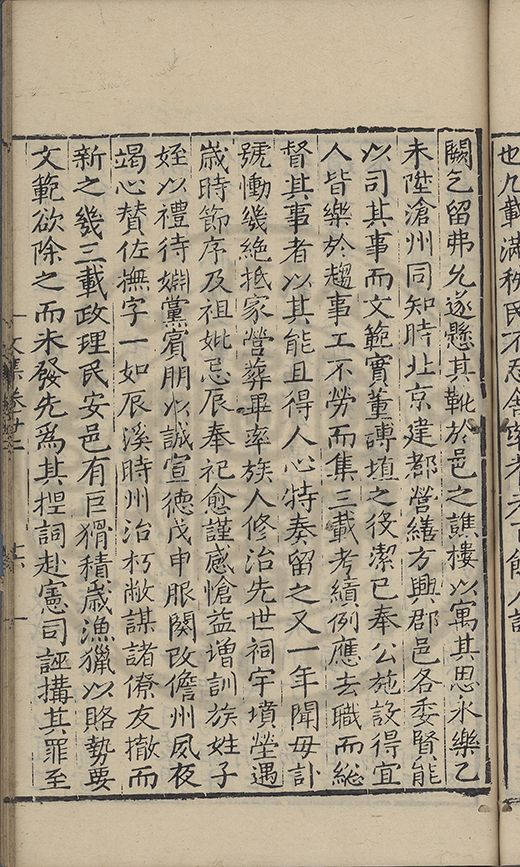 也九載滿秩民不忍舍
闕乞留弗允遂懸其靴於邑之譙樓以寓其思永樂乙
未陞滄州同知時北京建都營繕方興郡邑各委賢能
以司其事而文範實董磚埴之役潔已奉公施設得宜
人皆樂於趨事工不勞而集三載考績例應去職而總
督其事者以其能且得人心特奏留之又一年聞母訃
號慟幾絶抵家營葬畢率族人修治先世祠宇墳塋遇
歲時節序及祖妣忌辰奉祀愈謹感愴益增訓族姓子
姪以禮待婣黨賓朋以誠宣德戊申服闋改儋州夙夜
竭心贊佐撫字一如辰溪時州治朽敝謀諸僚友撤而
新之幾三載政理民安邑有巨猾積歲漁獵以賂勢要
文範欲除之而未發先爲其捏詞赴憲司誣搆其罪至
文集卷廿二